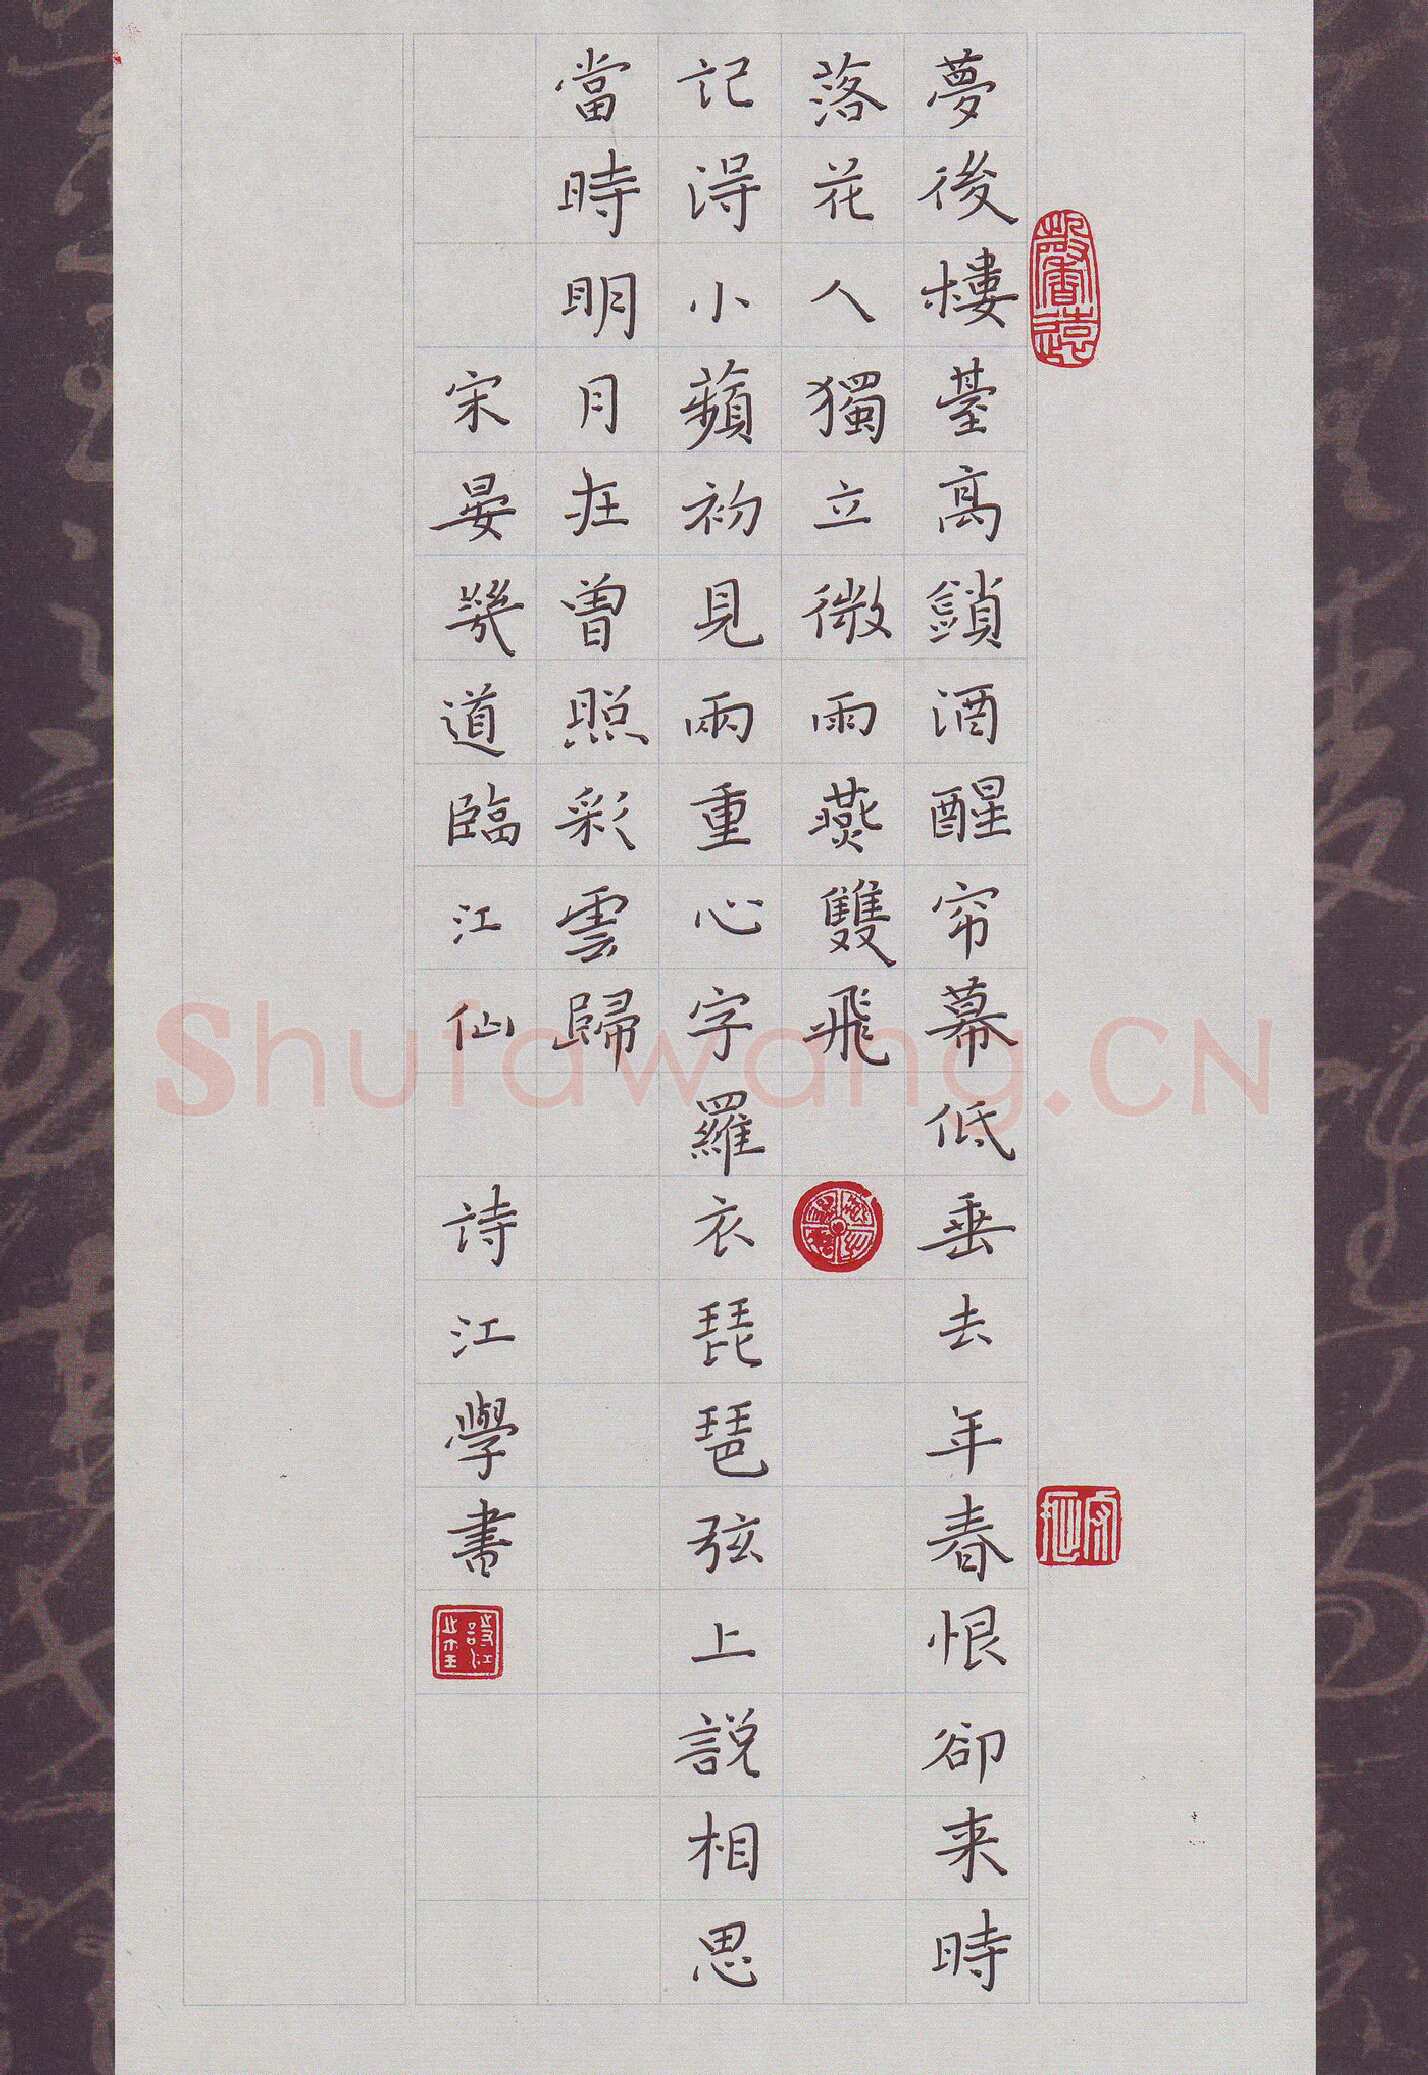 夢後樓臺高鎖酒醒帘幕低垂去年春恨卻来時
落花人獨立微雨燕雙飛
記得小蘋初見兩重心字羅衣琵琶弦上説相思
當時明月在曾照彩雲歸
宋晏幾道臨江仙 詩江學書
Shufawang.CN